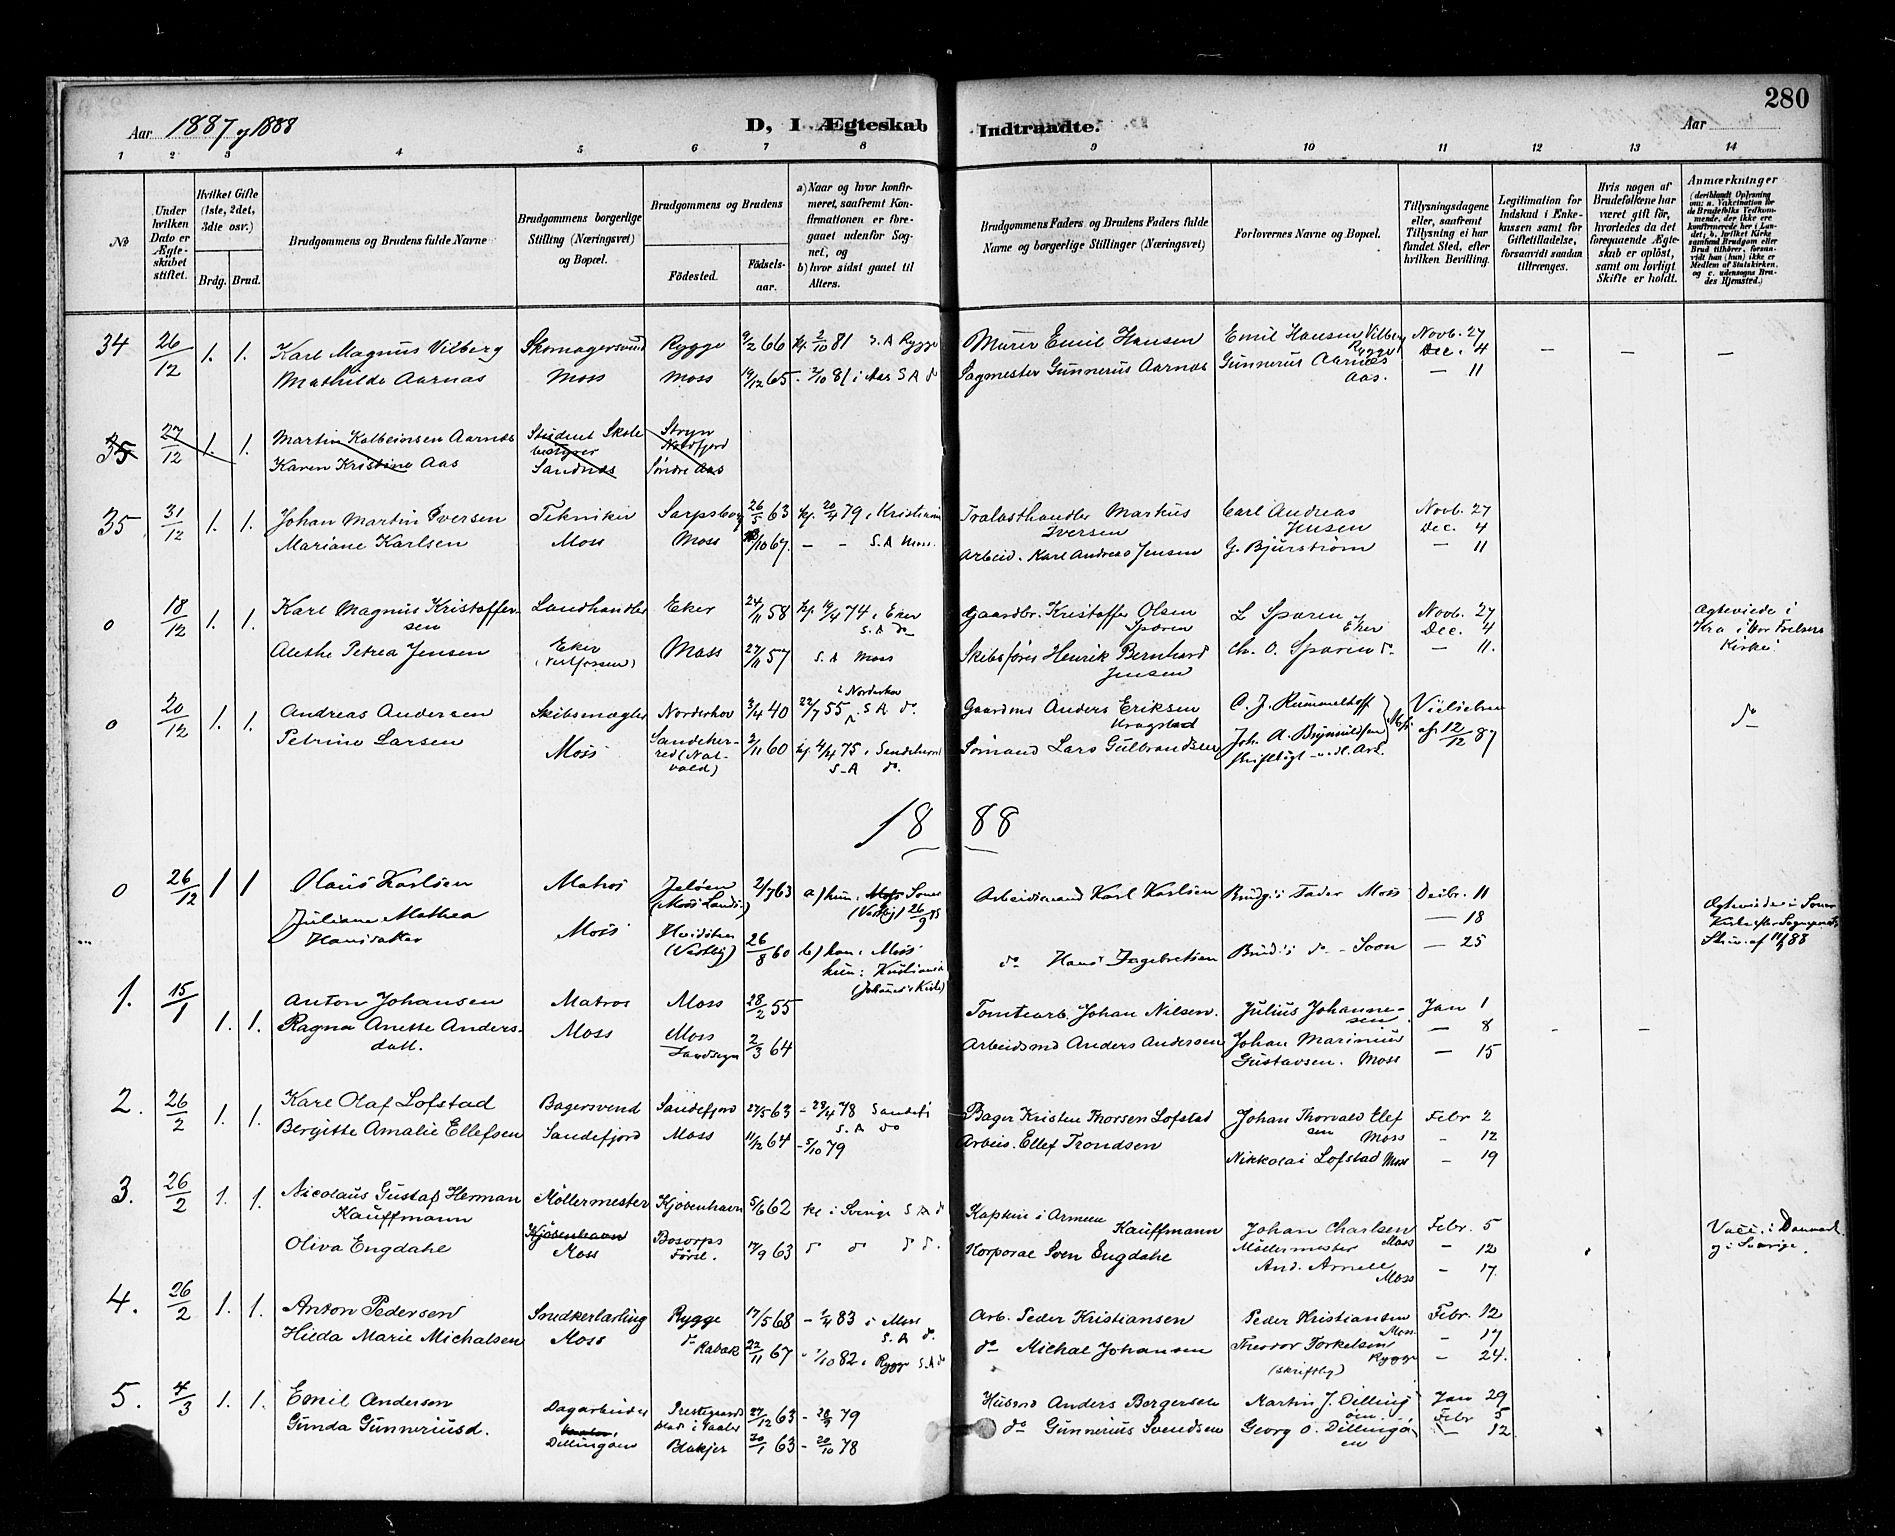 280
Aar 1887 og 1888
D, I Ægteskab Indtraadte.
Aar
1 2 3 4 5 6 7 8 9 10 11 12 13 14
No
Under hvilken Dato er Ægteskabet stiftet.
Hvilket Gifte (1ste, 2det, 3dte osv.)
Brdg. Brud.
Brudgommens og Brudens fulde Navne
Brudgommens borgerlige Stilling (Næringsvei) og Bopæl.
Brudgommens og Brudens
Födested.
Födselsaar.
a) Naar og hvor konfirmeret, saafremt Konfirmationen er foregaaet udenfor Sognet, og
b) hvor sidst gaaet til Alters.
Brudgommens Faders og Brudens Faders fulde Navne og borgerlige Stillinger (Næringsvei)
Forlovernes Navne og Bopæl.
Tillysningsdagene eller, saafremt Tillysning ei har fundet Sted, efter hvilken Bevilling.
Legitimation for Indskud i Enkekassen samt for Giftetilladelse, forsaavidt saadan tiltrænges.
Hvis nogen af Brudefolkene har været gift för, hvorledes da det foregaaende Ægteskab er oplöst, samt om lovligt Skifte er holdt.
Anmærkninger
34 26/12 1. 1. Karl Magnus Vilberg Skomagersvend Rygge 9/2 66 kf. 2/10 81 S.A Rygge Murer Emil Hansen Emil Hansen Vilberg Rygge Novb. 27
Mathilde Aarnas Moss Moss 19/12 65 - 2/10 81 i Aas S A do Sagmester Gunnerus Aarnæs Gunnerus Aarnæs Aas. Dec. 4
— 11
35 27/12 1. 1. Martin Kolbeinsen Aarnæs Student Skolebestyrer Stryn Nordfjord
Karen Kristine Aas Sandnæs Söndre Aas
35 31/12 1. 1. Johan Martin Iversen Tekniker Sarpsborg 26/5 63 kf. 20/4 79, Kristiania Tralasthandler Markus Iversen Carl Andreas Jensen Novb. 27
Dec. 4
Mariane Karlsen Moss Moss /10 67. — — S.A Moss. Arbeid. Karl Andreas Jensen G. Bjurström — 11
0 18/12 1. 1. Karl Magnus Kristoffersen Landhandler Eker 24/11 58 kf 19/4 74, Eker S.A do Gaardbr. Kristoffer Olsen Sparen L Sparen Eker Novb. 27
Dec. 4
Alethe Petrea Jensen Eker (Vestfossen) Moss 27/11 57 S.A Moss Skibsförer Henrik Bernhard Jensen Ch. O. Sparen do — 11.
Ægteviede i Kra i Vor Frelsers Kirke
0 20/12 1. 1. Andreas Andersen Skibsmægler Norderhov 3/4 40 22/7 55 i Norderhov S.A do. Gaardmd Anders Eriksen Kragstad C. J. Rummelhoff Vielselse
Petrine Larsen Moss Sandeherred 2/11 60 kf. 4/4 75, Sandeherred S.A do. Sömand Lars Gulbrandsen Joh. A. Brynildsen af 12/12 87
do
1888
0 26/12 1 1 Olaus Karlsen Matros Jelöen (Moss Lands.) 2/7 63 a) hun, Moss Soner (Vestby) 26/9 75 Arbeidsmand Karl Karlsen Brudg:s Fader Moss Decbr. 11
— 18
Juliane Mathea Hansdatter Moss Hvidsten (Vestby) 26/8 60 b) han: Moss hun: Kristiania (Johannes Kirke) do Hans Ingebretsen Brud:s do - Soon — 25
Ægteviede i Soner Kirke
1. 15/1 1. 1. Anton Johansen Matros Moss 28/2 55 Tomtearb. Johan Nilsen. Julius Johannesen Jan 1
— 8
Ragna Anette Andersdatt. Moss Moss Landsogn 2/3 64 Arbeidsmd Anders Andersen Johan Marinius Gustavsen. Moss — 15
2. 26/2 1. 1. Karl Olaf Lofstad Bagersvend Sandefjord 27/5 63 - 29/4 78 Sandefj S.A do Bager Kristen Thorsen Lofstad Johan Thorvald Elefsen Moss Febr 2
- 12
Bergitte Amalie Ellefsen Sandefjord Moss 11/12 64 - 5/10 79 Arbeis. Ellef Trondsen Nikkolai Lofstad Moss - 19
3. 26/2 1. 1. Nicolaus Gustaf Herman Kauffmann Möllermester Kjöbenhavn 5/6 62 kf i Sverige S A do Kaptein i Armeen Kauffmann Johan Charlsen Möllermester Moss Febr. 5
- 12
Oliva Engdahl Kjöbenhavn Moss Bosorps Förs. 17/9 63 do do do do. Korporal Sven Engdahl And. Arnell Moss - 17.
Vacc. i Danmark og i Sverige.
4. 26/2 1. 1. Anton Pedersen Snedkerlærling Rygge 17/5 68 - 1/4 83 i Moss S.A do. Arb. Peder Kristiansen Peder Kristiansen Moss Febr. 12
- 17
Hilda Marie Michalsen Moss do Rabæk 22/11 67 - 1/10 82, Rygge S.A do do Michal Johansen Theodor Torkelsen Rygge (skriftlig) - 24.
5. 4/3 1. 1. Emil Andersen Dagarbeider Prestegaards 27/12 63 - 28/9 79 Husmd Anders Bergersen Martin J. Dillingöen Jan 29
Febr 5
Gunda Gunneriusd. Dillingöen Blakjer 20/1 63 - 20/10 78 do Gunnerius Svendsen Georg O. Dillingöen — 12